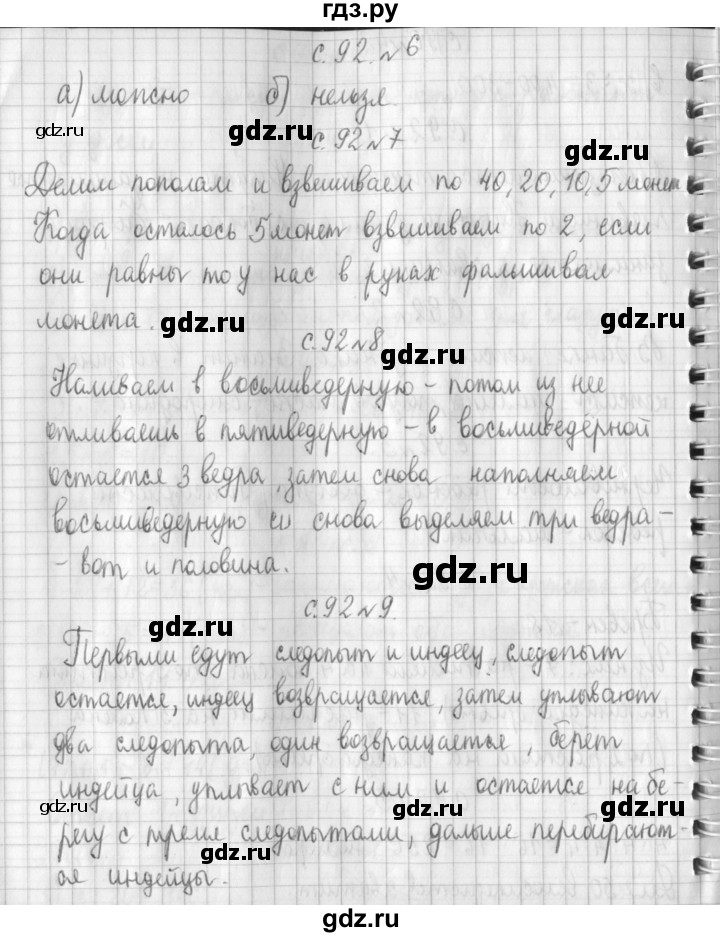 гдз.ру
с. 92. №6
а) можно б) нельзя.
gdz.ru gdz.ru
с. 92 №7
gdz.ru
Делим пополам и взвешиваем по 40, 20, 10, 5 монет
Когда осталось 5 монет взвешиваем по 2, если
они равны то у нас в руках фальшивая
монета.
gdz.ru gdz.ru
с. 92 №8
gdz.ru
Наливаем в восьмиведерную – потом из нее
отливаешь в пятиведерную – в восьмиведёрной
остается 3 ведра, затем снова наполняем
восьмиведерную и снова выделяем три ведра –
– вот и половина.
gdz.ru
с. 92 №9.
gdz.ru gdz.ru
Первыми едут следопыт и индеец, следопыт
остается, индеец возвращается, затем уплывают
два следопыта, один возвращается, берет
индейца, уплывает с ним и остается на бе-
gdz.ru gdz.ru gdz.ru
регу с тремя следопытами, дальше перебирают-
gdz.ru gdz.ru
ся индейцы.
gdz.ru